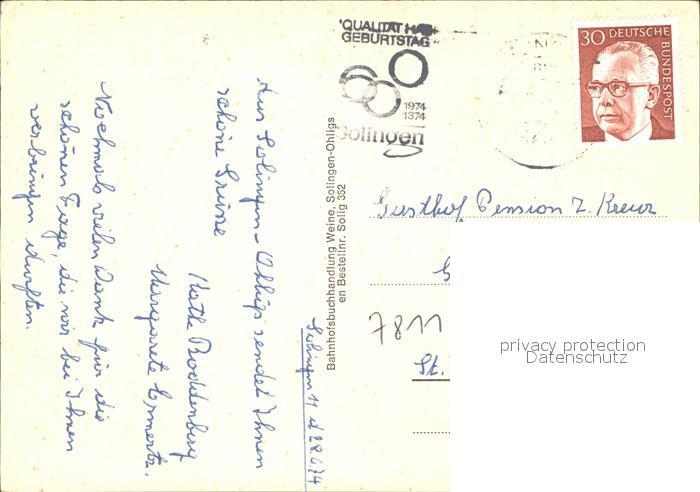 "QUALITÄT HAT
GEBURTSTAG"
1974
1374
Solingen
30 DEUTSCHE
BUNDESPOST
Aus Solingen-Ohligs sendet Ihnen
schöne Grüsse
Käthe Boddenberg
Margarete
Nochmals vielen Dank für die
schönen Tage, die wir bei Ihnen
verbringen durften.
Solingen 11 d 28.6.74
Bahnhofsbuchhandlung Weine, Solingen-Ohligs
en Bestellnr. Solig 352
Gasthof Pension z. Kreuz
7811
St.
privacy protection
Datenschutz